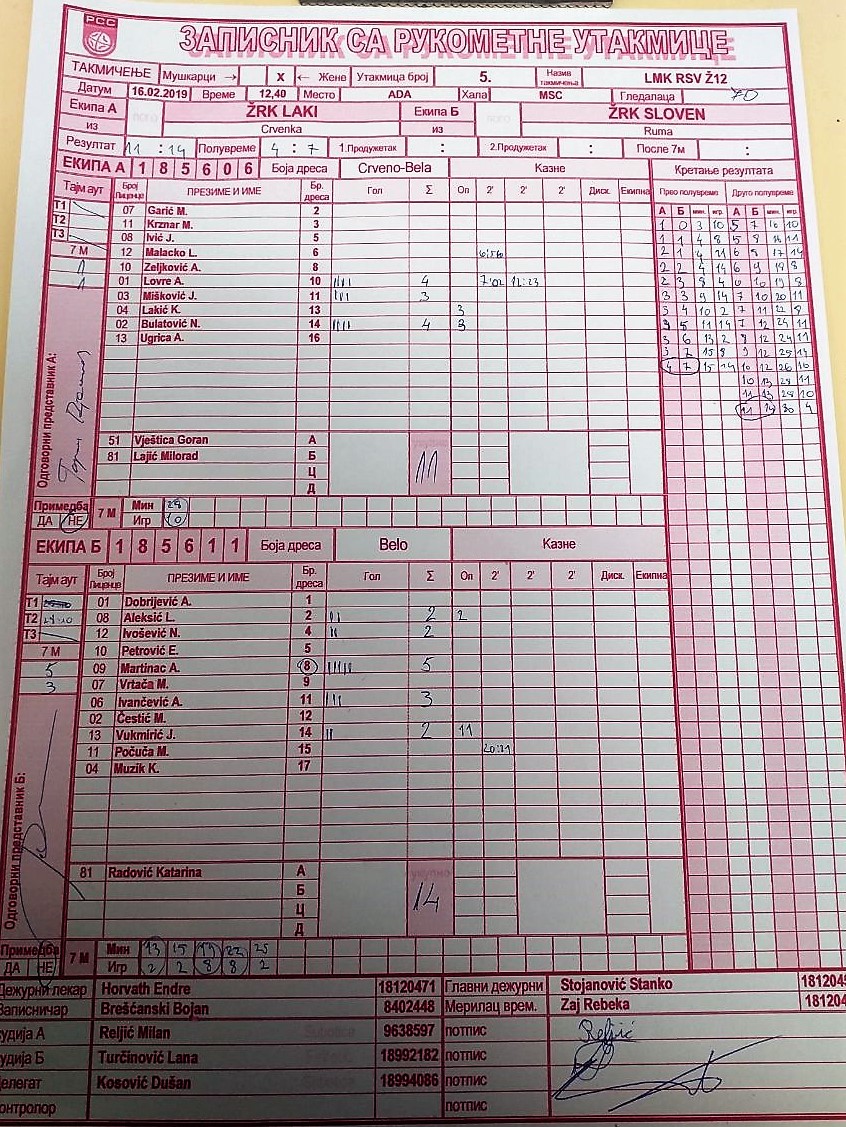 РСС
ЗАПИСНИК СА РУКОМЕТНЕ УТАКМИЦЕ
ТАКМИЧЕЊЕ Мушкарци → X ← Жене Утакмица број 5. Назив такмичења LMK RSV Ž12
Датум 16.02.2019 Време 12,40 Место ADA Хала MSC Гледалаца 70
Екипа А ŽRK LAKI Екипа Б ŽRK SLOVEN
из Crvenka из Ruma
Резултат 11 : 14 Полувреме 4 : 7 1.Продужетак : 2.Продужетак : После 7м :
ЕКИПА А 1 8 5 6 0 6 Боја дреса Crveno-Bela Казне Кретање резултата
Тајм аут Број Лиценце ПРЕЗИМЕ И ИМЕ Бр. дреса Гол Σ Оп 2' 2' 2' Диск. Екипна Прво полувреме Друго полувреме
А Б мин. игр. А Б мин. игр.
Т1 07 Garić M. 2
Т2 11 Krznar M. 3
Т3 08 Ivić J. 5
7 М 12 Malacko L. 6 6:56
1 10 Zeljković A. 8
1 01 Lovre A. 10 IIII 4 7'02 12:23
03 Mišković J. 11 III 3
04 Lakić K. 13 3
02 Bulatović N. 14 IIII 4 3
13 Ugrica A. 16
1 0 3 10 5 7 16 10
1 1 4 8 5 8 16 11
2 1 4 21 6 8 17 14
2 2 4 14 6 9 18 8
2 3 8 4 6 10 19 8
3 3 9 14 7 10 20 11
3 4 10 2 7 11 22 8
3 5 11 14 7 12 24 11
3 6 13 2 8 12 24 11
3 7 15 8 9 12 25 14
4 7 15 14 10 12 26 10
10 13 28 11
11 13 28 10
11 14 30 4
Одговорни представник А:
51 Vještica Goran А
81 Lajić Milorad Б укупно 11
Ц
Д
Примедба ДА НЕ 7 М Мин 28
Игр 10
ЕКИПА Б 1 8 5 6 1 1 Боја дреса Belo Казне
Тајм аут Број Лиценце ПРЕЗИМЕ И ИМЕ Бр. дреса Гол Σ Оп 2' 2' 2' Диск. Екипна
Т1 01 Dobrijević A. 1
Т2 28:10 08 Aleksić L. 2 II 2 2
Т3 12 Ivošević N. 4 II 2
7 М 10 Petrović E. 5
5 09 Martinac A. 8 IIIII 5
3 07 Vrtača M. 9
06 Ivančević A. 11 III 3
02 Čestić M. 12
13 Vukmirić J. 14 II 2 11
11 Počuča M. 15 20:21
04 Muzik K. 17
Одговорни представник Б:
81 Radović Katarina А укупно 14
Б
Ц
Д
Примедба ДА НЕ 7 М Мин 13 15 19 22 25
Игр 2 2 8 8 2
Дежурни лекар Horvath Endre 18120471 Главни дежурни Stojanović Stanko 181204
Записничар Brešćanski Bojan 8402448 Мерилац врем. Zaj Rebeka 181204
удија А Reljić Milan 9638597 потпис Reljić
удија Б Turčinović Lana 18992182 потпис
елегат Kosović Dušan 18994086 потпис
онтролор потпис